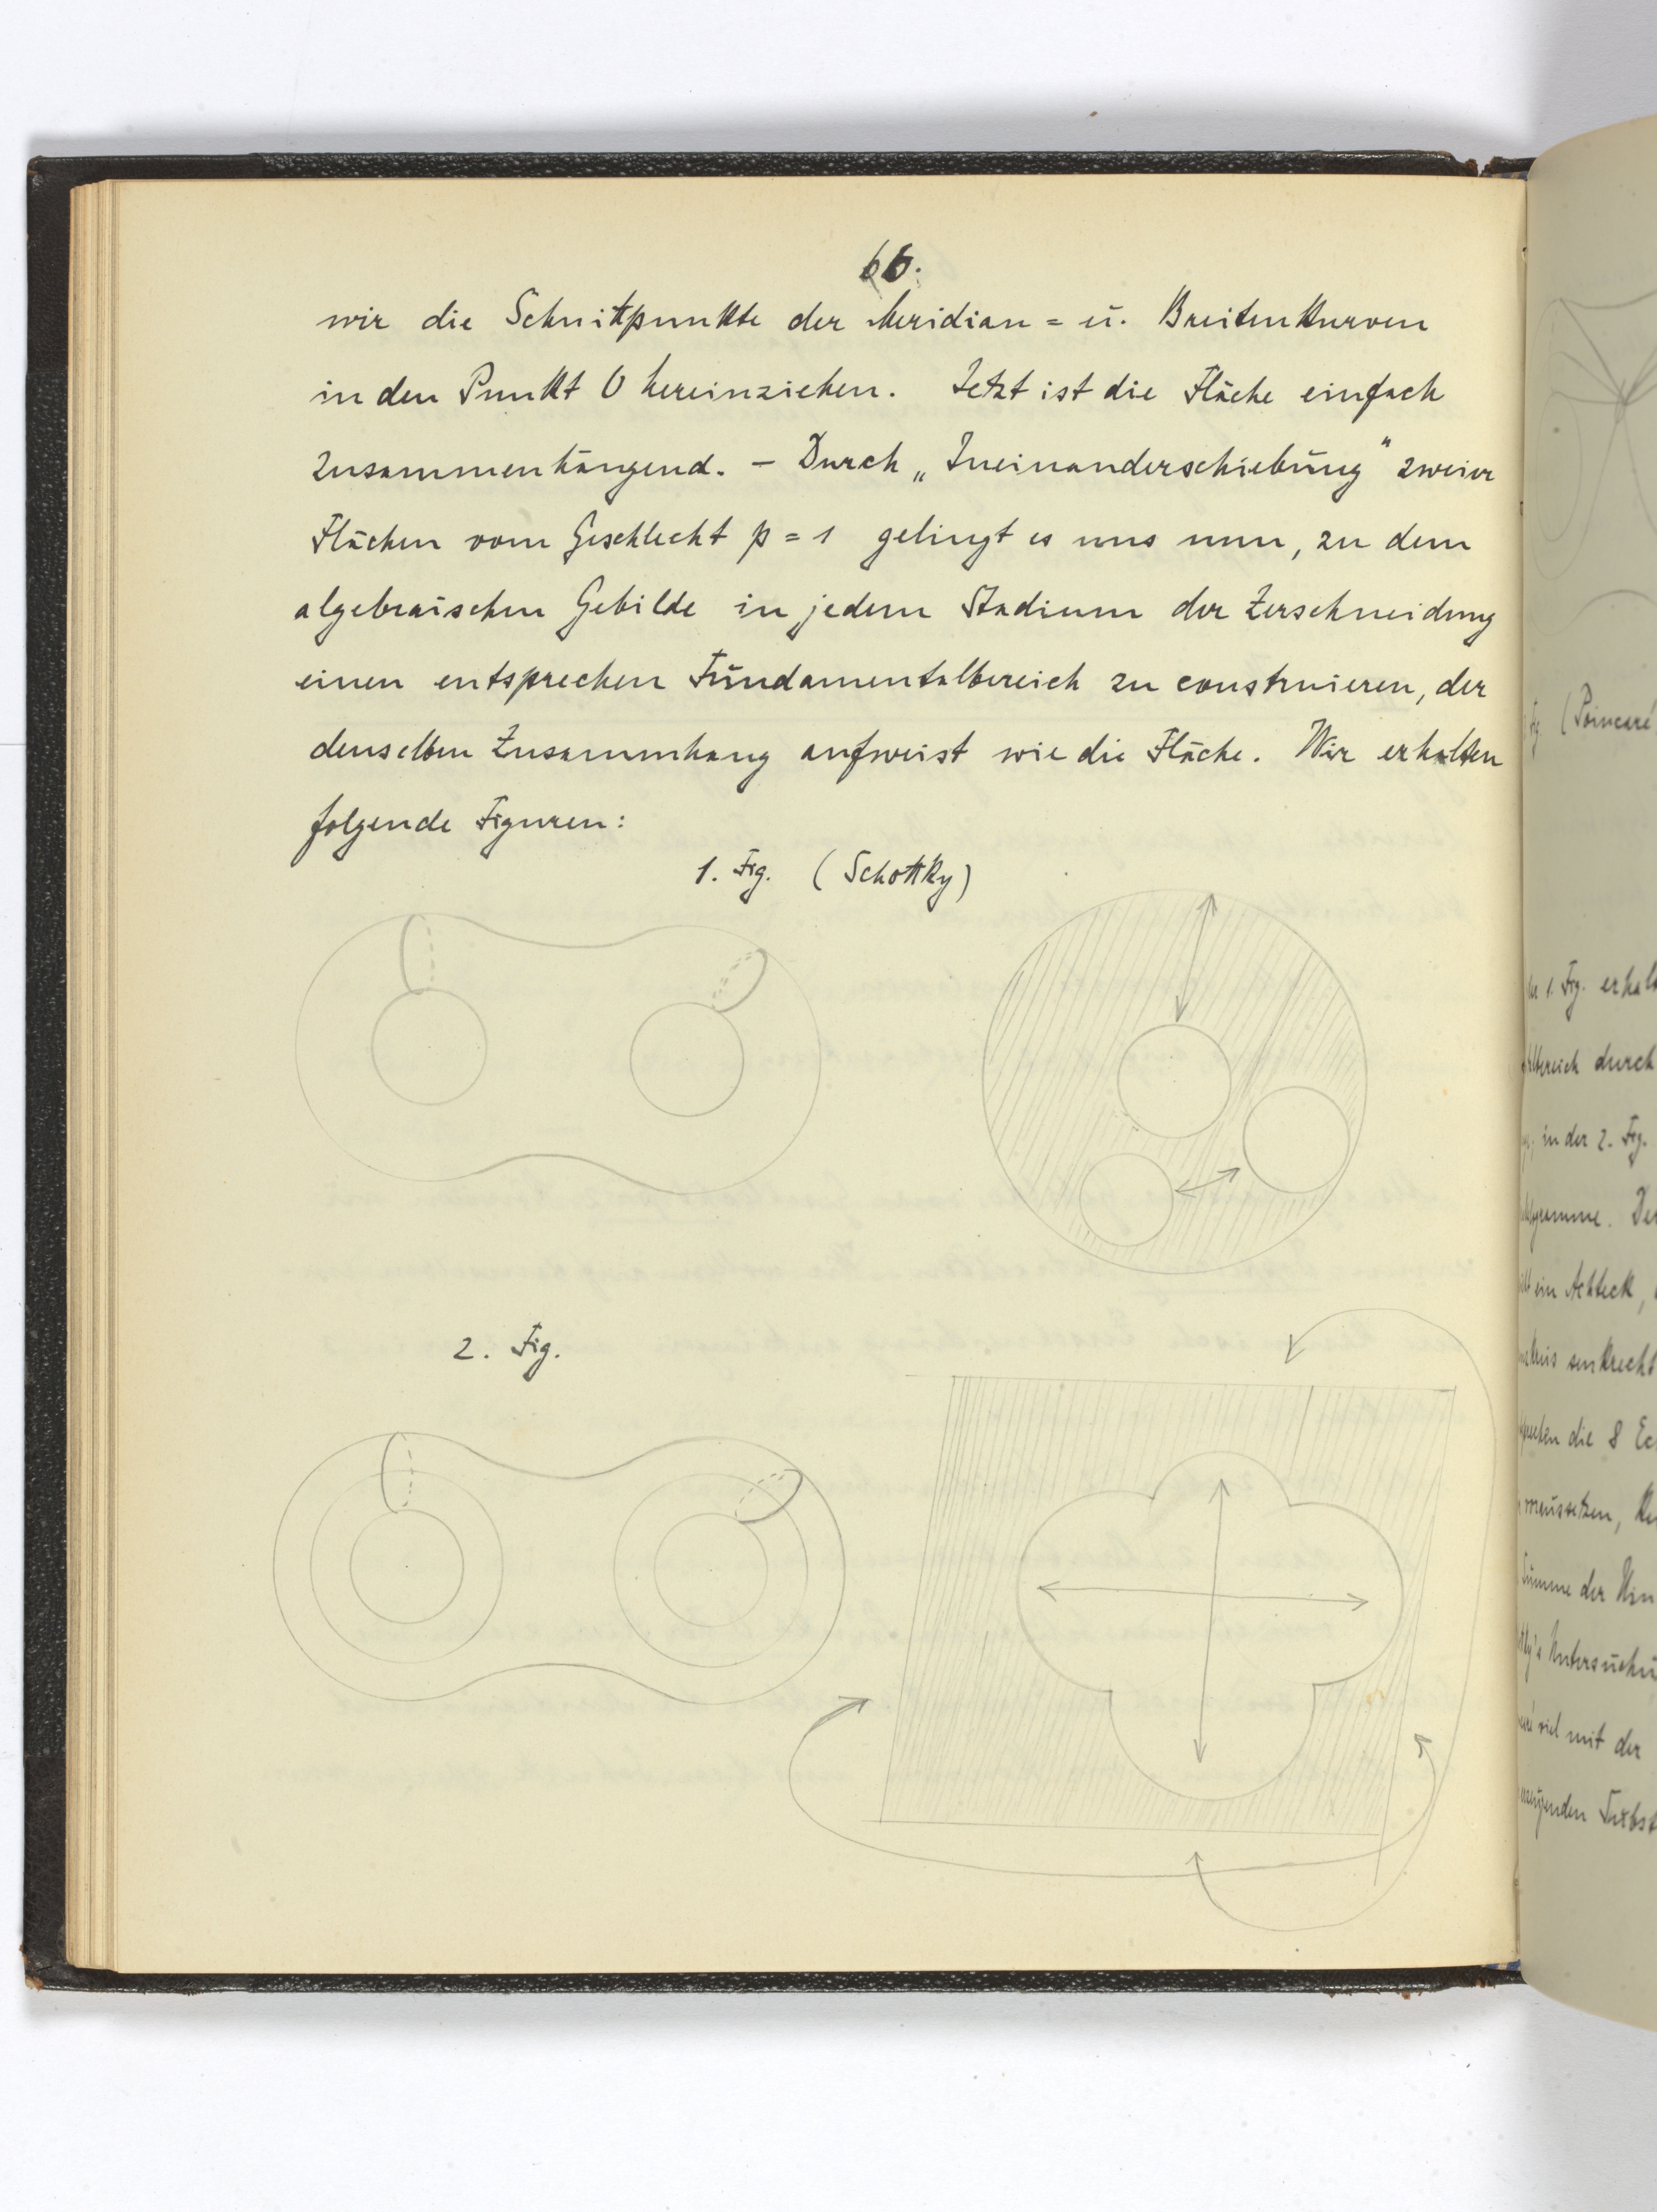 66.
wir die Schnittpunkte der Meridian = u. Breitenkurven
in den Punkt O hereinziehen. Jetzt ist die Fläche einfach
zusammenhängend. – Durch „Ineinanderschiebung" zweier
Flächen vom Geschlecht p = 1 gelingt es uns nun, zu dem
algebraischen Gebilde in jedem Stadium der Zerschneidung
einen entsprechen Fundamentalbereich zu construieren, der
denselben Zusammhang aufweist wie die Fläche. Wir erhalten
folgende Figuren:
1. Fig. (Schottky)
2. Fig.
Fig. (Poincaré
1. Fig. erhal
durch
in der 2. Fig.
ein Achteck,
senkrecht
die 8 Ec
der Win
viel mit der